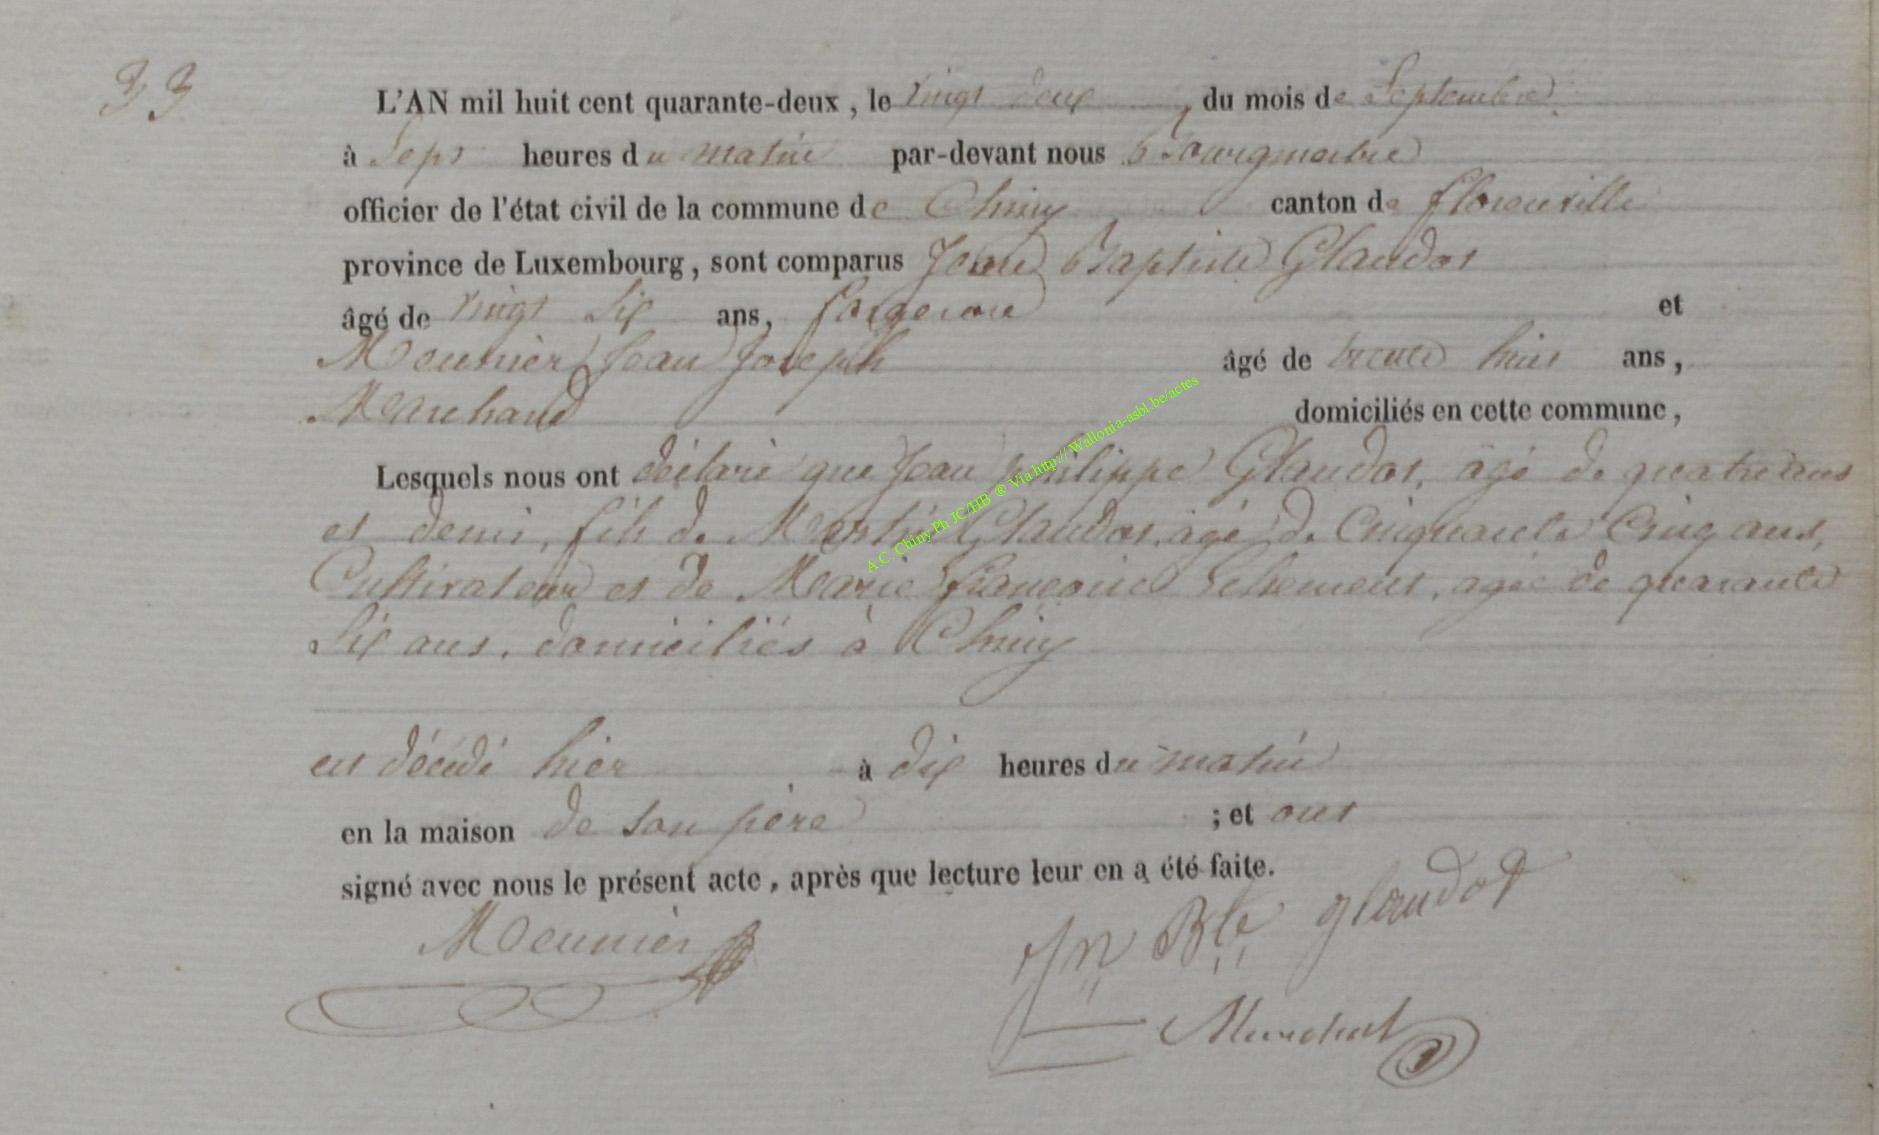 33
L'AN mil huit cent quarante-deux, le vingt deux, du mois de Septembre
à Sept heures du matin par-devant nous Bourgmestre
officier de l'état civil de la commune de Chiny canton de florenville
province de Luxembourg, sont comparus Jean Baptiste Glaudot
âgé de vingt six ans, forgeron et
Meunier Jean Joseph âgé de trente huit ans,
Marchand domiciliés en cette commune,
Lesquels nous ont déclaré que Jean philippe Glaudot, âgé de quatre ans
et demi, fils de Martin Glaudot, âgé de Cinquante Cinq ans,
Cultivateur et de Marie françoise, agée de quarante
Six ans, domiciliés à Chiny
est décédé hier à dix heures du matin
en la maison de son père ; et ont
signé avec nous le présent acte, après que lecture leur en a été faite.
Meunier Jn Bte glaudot
A.C. Chiny Ph JC/HB ® Via http://Wallonia-asbl.be/actes